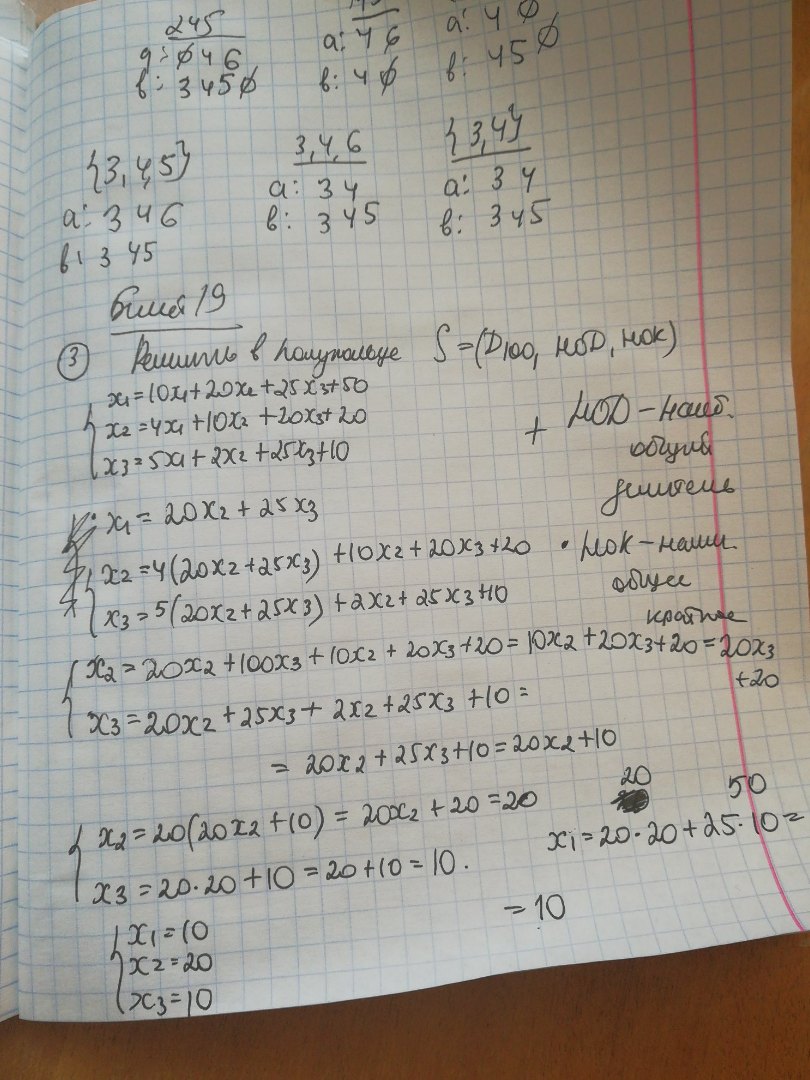 245
a: 0 4 6
в: 3 4 5 0
a: 4 6
в: 4 0
a: 4 0
в: 4 5 0
{3,4,5}
a: 3 4 6
в: 3 4 5
3,4,6
a: 3 4
в: 3 4 5
{3,4}
a: 3 4
в: 3 4 5
Билет 19
③ Решить в полукольце S=(D100, НОД, НОК)
x1=10x1+20x2+25x3+50
x2=4x1+10x2+20x3+20
x3=5x1+2x2+25x3+10
+ НОД – наиб.
общий
делитель
· НОК – наим.
общее
кратное
x1=20x2+25x3
x2=4(20x2+25x3)+10x2+20x3+20
x3=5(20x2+25x3)+2x2+25x3+10
x2=20x2+100x3+10x2+20x3+20=10x2+20x3+20=20x3
+20
x3=20x2+25x3+2x2+25x3+10=
=20x2+25x3+10=20x2+10
x2=20(20x2+10)=20x2+20=20
x3=20·20+10=20+10=10.
20 50
x1=20·20+25·10=
=10
x1=10
x2=20
x3=10